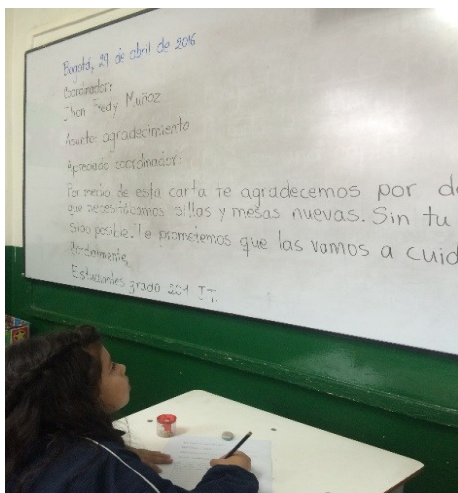 Bogotá, 29 de abril de 2016
Coordinador:
Jhon Fredy Muñoz
Asunto: agradecimiento
Apreciado coordinador:
Por medio de esta carta Te agradecemos por
que necesitábamos sillas y mesas nuevas. Sin tu
sido posible. Te prometemos que las vamos a
Cordialmente,
Estudiantes grado 201 J.T.